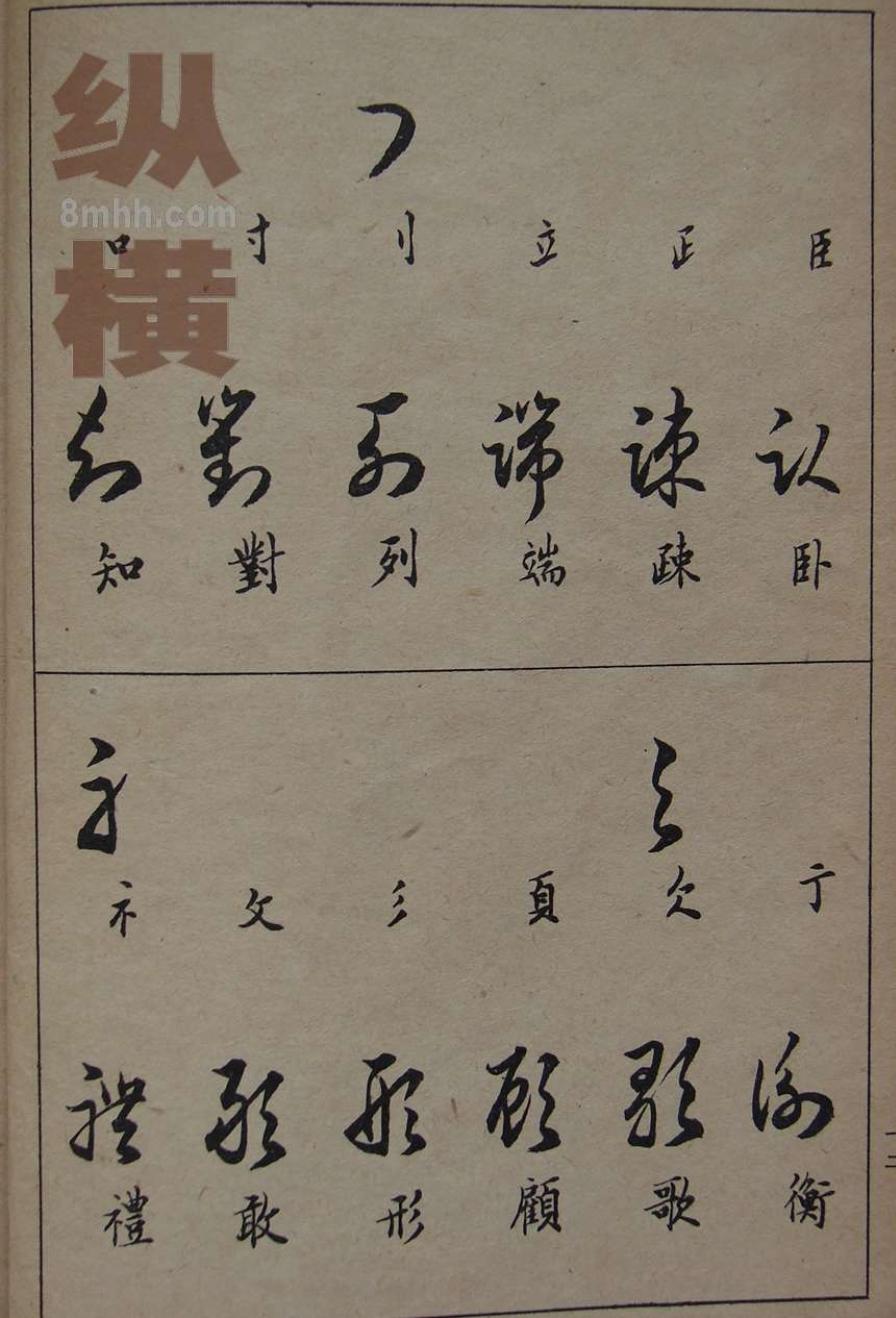 臣 正 立 刂 寸 口
卧 疎 端 列 對 知
亍 欠 頁 彡 攵 礻
衡 歌 顧 形 敢 禮
一二
纵横
8mhh.com